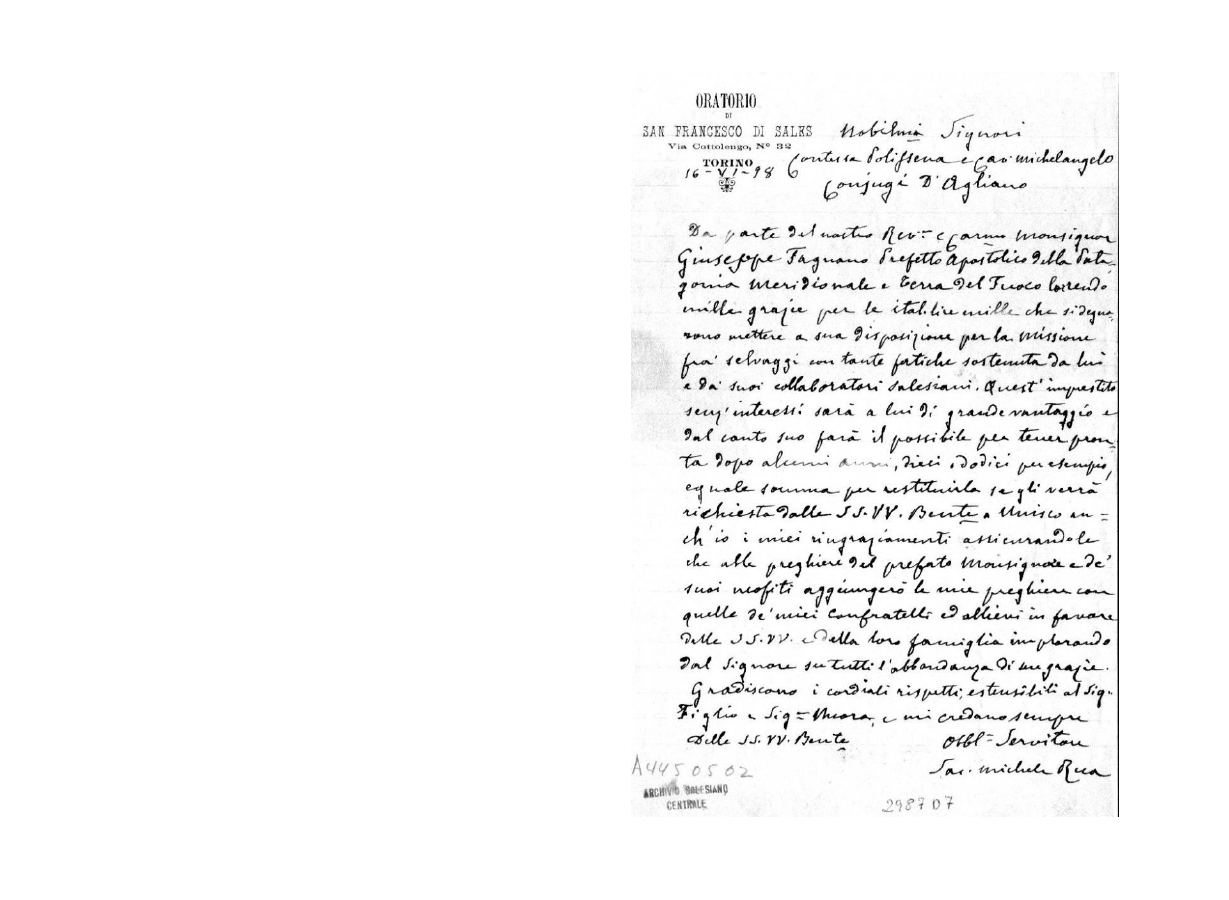 ORATORIO
DI
SAN FRANCESCO DI SALES
Via Cottolengo, N° 32
TORINO
16-VI-98
Nobilmi Signori
Contessa Polissena e Cav. Michelangelo
Conjugi D'Agliano
Da parte del nostro Rev. e Carmo Monsignor
Giuseppe Fagnano Prefetto Apostolico della Pata-
gonia Meridionale e Terra del Fuoco lor rendo
mille grazie per le ital. lire mille che si degna-
rono mettere a sua disposizione per la Missione
fra' selvaggi con tante fatiche sostenuta da lui
e da' suoi collaboratori salesiani. Quest' imprestito
senz' interessi sarà a lui di grande vantaggio e
dal canto suo farà il possibile per tener pron-
ta dopo alcuni anni, dieci o dodici per esempio,
eguale somma per restituirla se gli verrà
richiesta dalle SS. VV. Bente Unisco an=
ch'io i miei ringraziamenti assicurandole
che alle preghiere del prefato Monsignore e de'
suoi neofiti aggiungerò le mie preghiere con
quelle de' miei Confratelli ed allievi in favore
delle SS. VV. e della loro famiglia implorando
dal Signore su tutti l'abbondanza di sue grazie.
Gradiscano i cordiali rispetti, estensibili al Sig.
Figlio e Sig. Nuora, e mi credano sempre
Delle SS. VV. Bente
Obbl. Servitore
Sac. Michele Rua
A4450502
ARCHIVIO SALESIANO
CENTRALE
2987D7